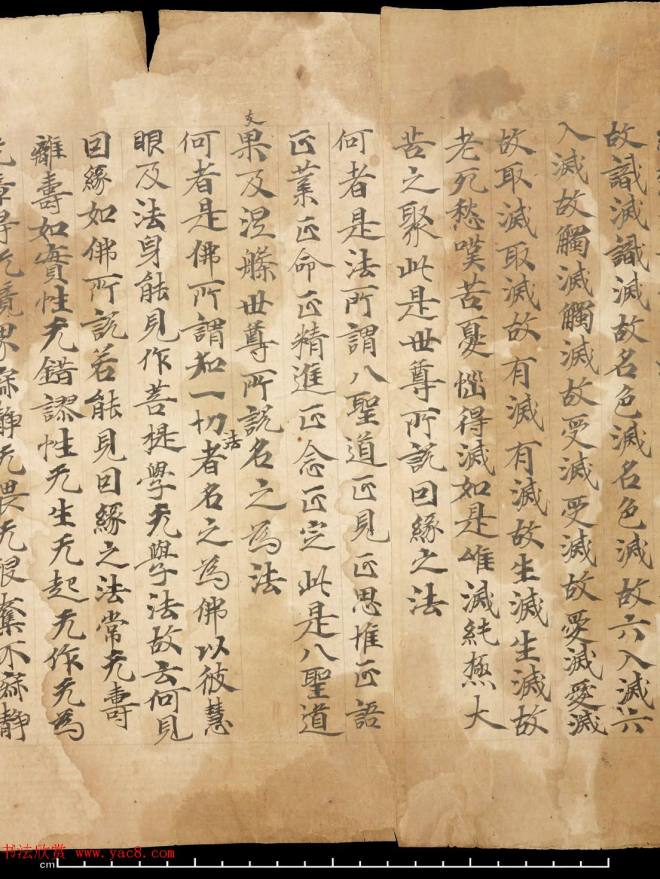 故識滅識滅故名色滅名色滅故六入滅六
入滅故觸滅觸滅故受滅受滅故愛滅愛滅
故取滅取滅故有滅有滅故生滅生滅故
老死愁嘆苦憂惱得滅如是唯滅純極大
苦之聚此是世尊所說回緣之法
何者是法所謂八聖道正見正思惟正語
正業正命正精進正念正定此是八聖道
果及涅槃世尊所說名之為法
支
何者是佛所謂知一切者名之為佛以彼慧
法
眼及法身能見作菩提學无學法故云何見
回緣如佛所說若能見回緣之法常无壽
離壽如實性无錯謬性无生无起无作无為
无障导无境界寂靜无畏无侵奪不寂靜
书法欣赏 www.yac8.com
cm